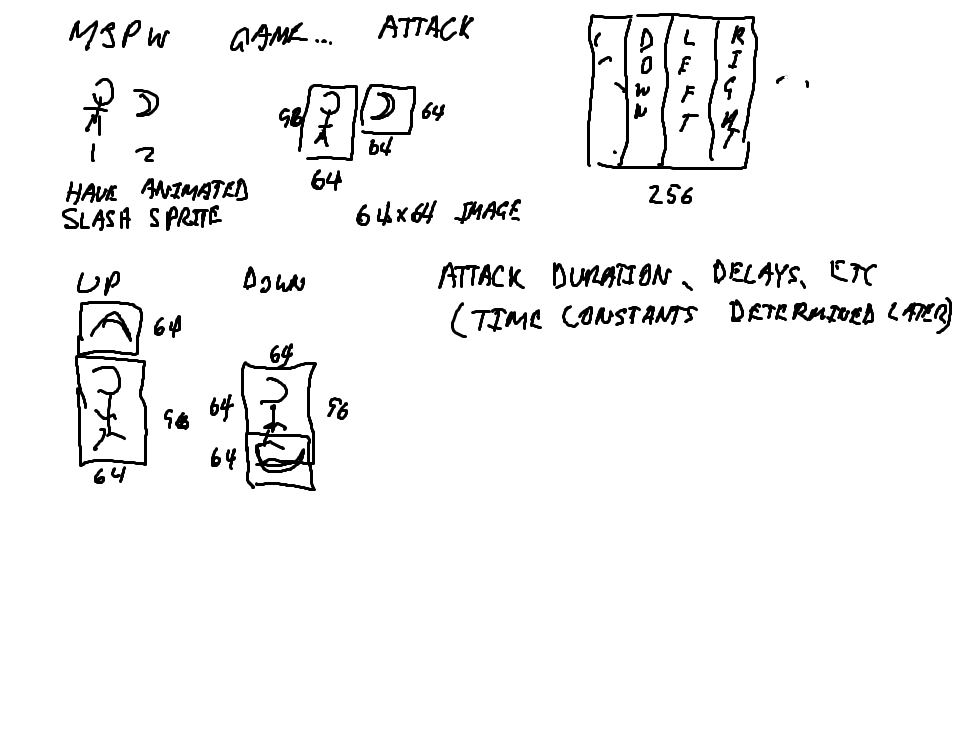 MSPW GAME... ATTACK
1 2
HAVE ANIMATED
SLASH SPRITE
98
64
64
64
64x64 IMAGE
DOWN
LEFT
RIGHT
256
UP
64
96
64
DOWN
64
64
96
64
ATTACK DURATION, DELAYS, ETC
(TIME CONSTANTS DETERMINED LATER)